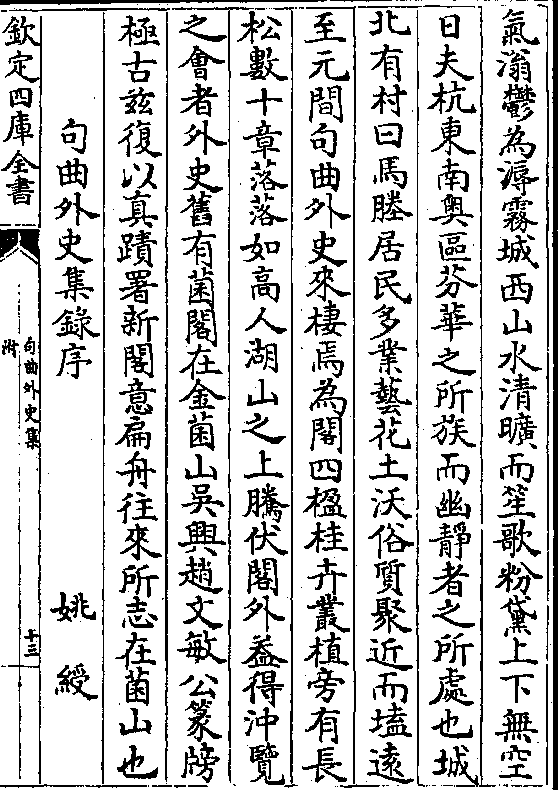 氣滃鬱為溽霧城西山水清曠而笙歌粉黛上下無空
日夫杭東南奧區芬華之所族而幽靜者之所處也城
北有村曰馬塍居民多業藝花土沃俗質聚近而壒遠
至元間句曲外史來棲焉為閣四楹桂卉叢植旁有長
松數十章落落如高人湖山之上騰伏閣外益得沖覽
之會者外史舊有菌閣在金菌山吳興趙文敏公篆牓
極古兹復以真蹟署新閣意扁舟往來所志在菌山也
句曲外史集錄序　姚綬
欽定四庫全書
句曲外史集
附
十三